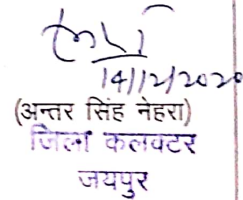 14/12/2020
(अन्तर सिंह नेहरा)
जिला कलक्टर
जयपुर